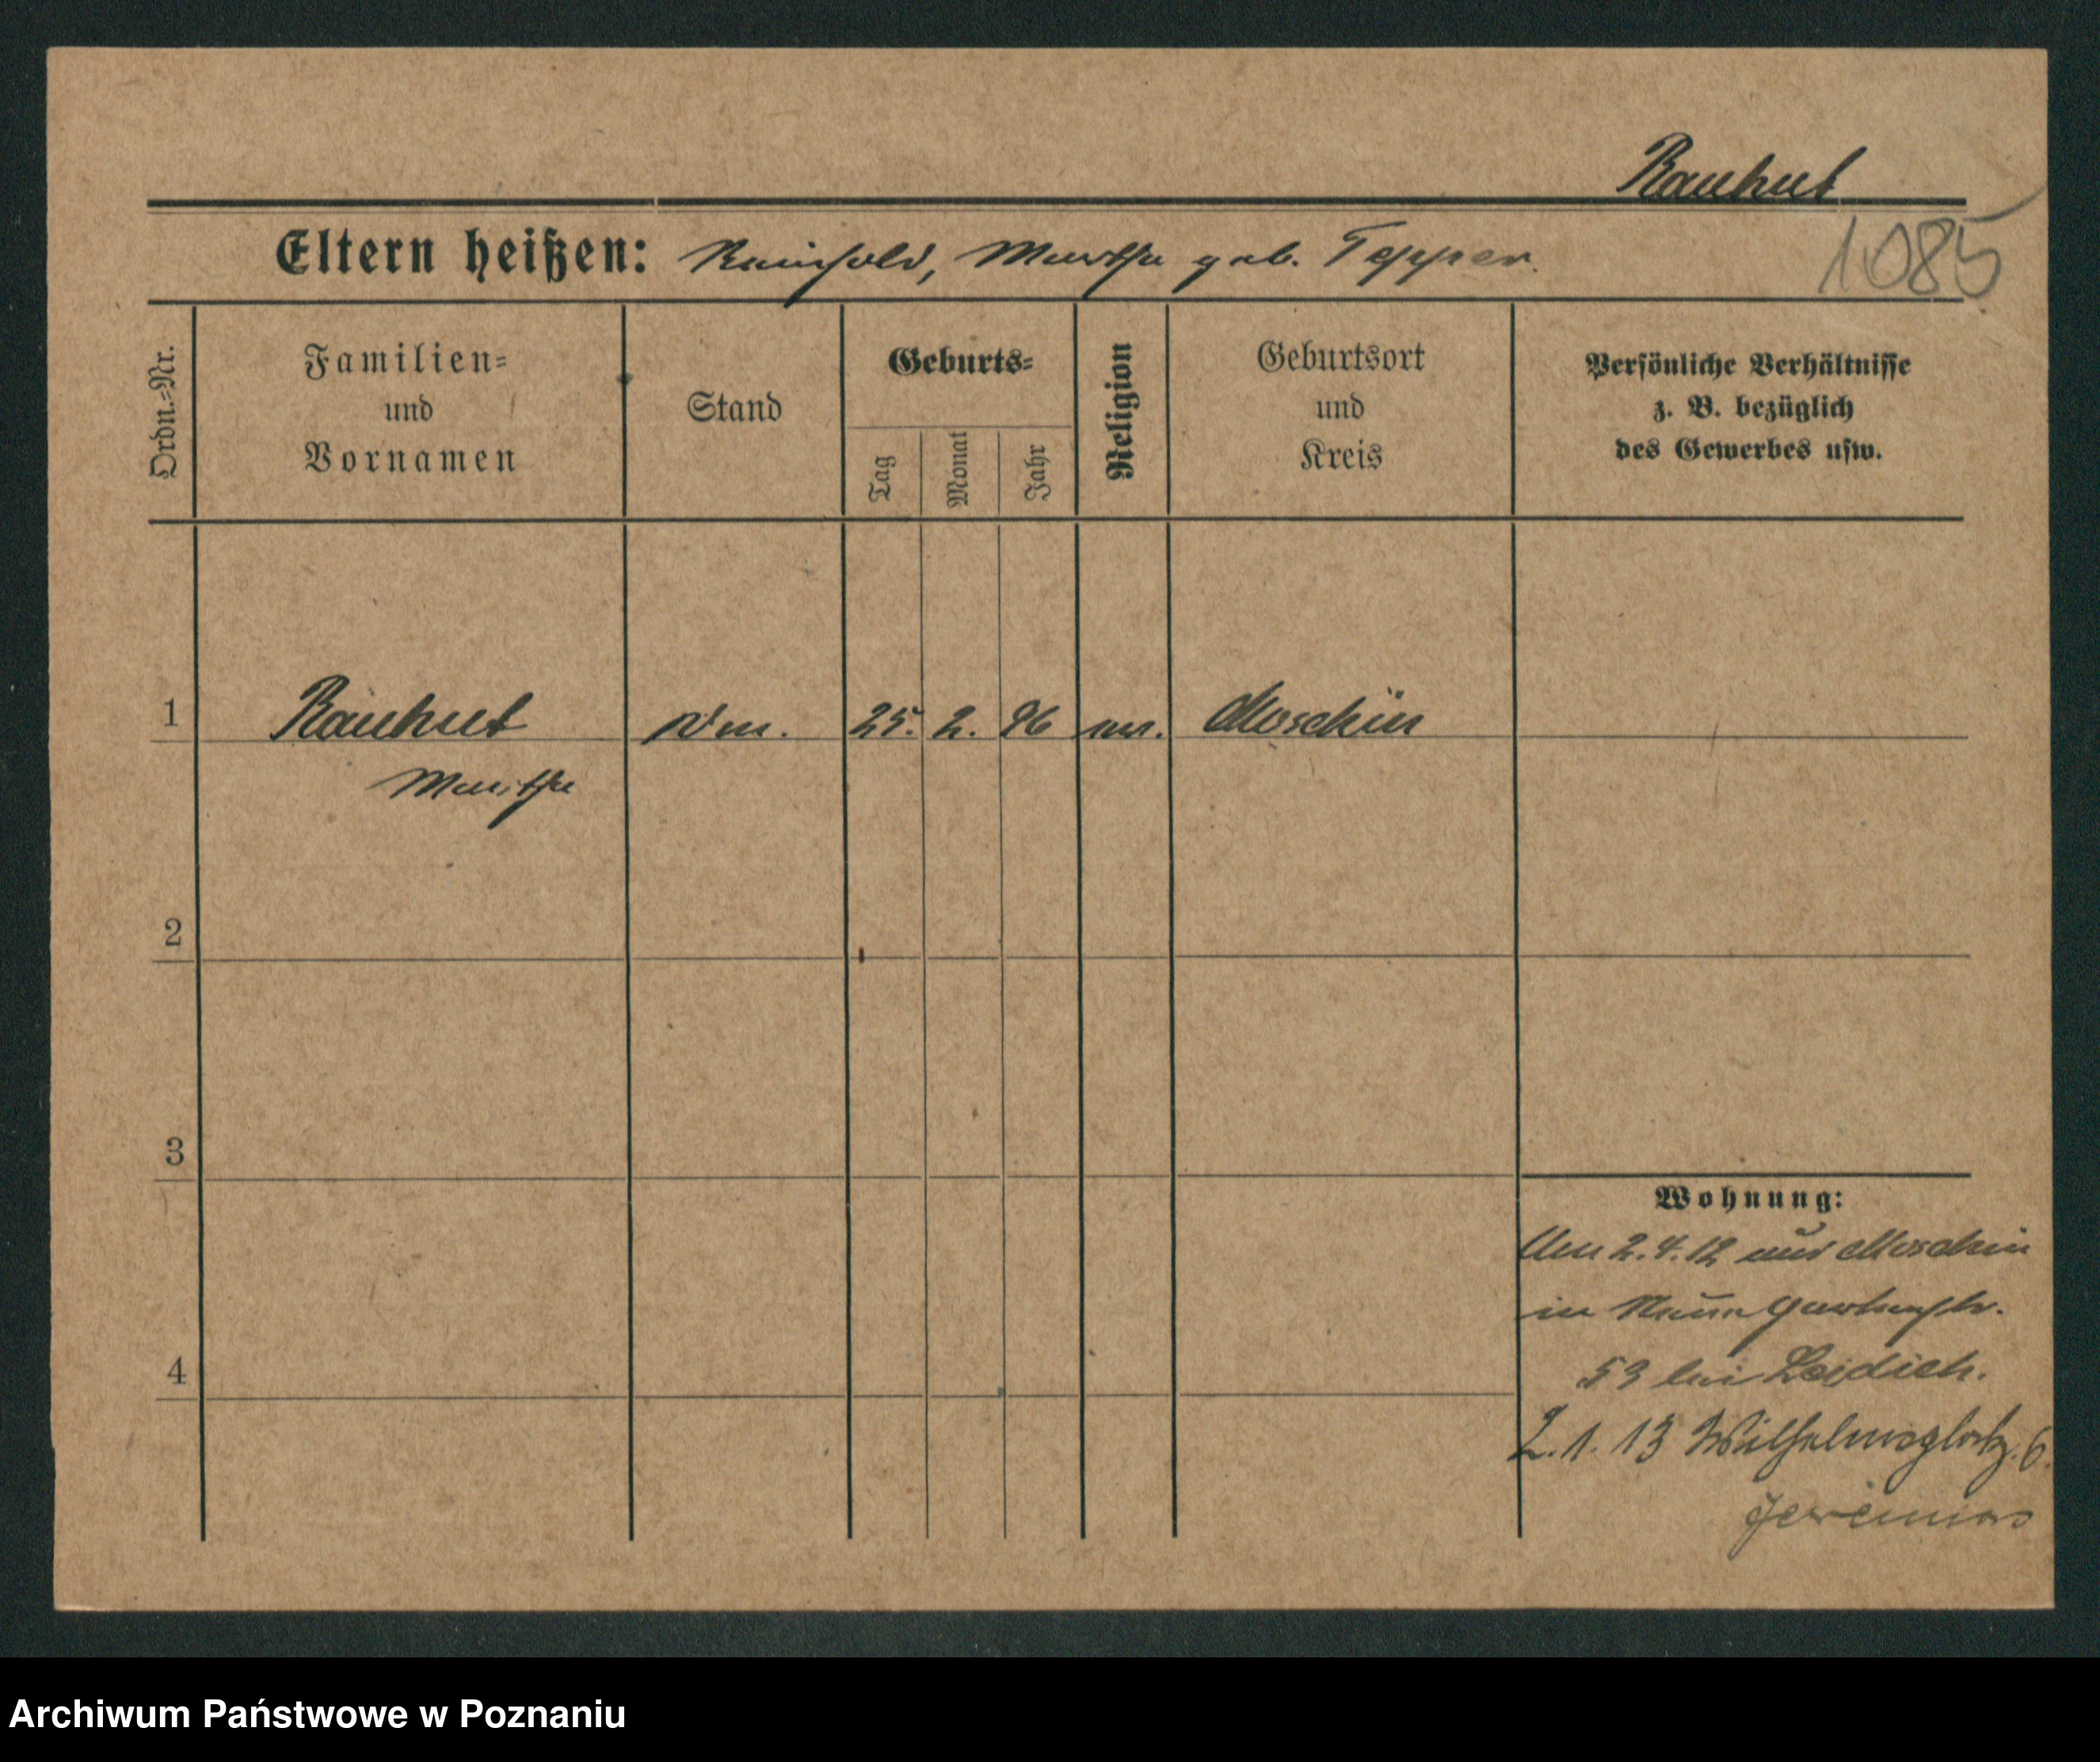 Rauhut
1085
Eltern heißen: Reinhold, Martha geb. Tepper.
Ordn.-Nr.
Familien-
und
Vornamen
Stand
Geburts-
Tag
Monat
Jahr
Religion
Geburtsort
und
Kreis
Persönliche Verhältnisse
z. B. bezüglich
des Gewerbes usw.
1 Rauhut 25. 2. 96 Moschin
Martha
2
3
Wohnung:
2. 4. 12 aus Moschin
in Neue Gartenstr.
4
53 bei Leidich.
2. 1. 13 Wilhelmsplatz. 6.
Jeremias
Archiwum Państwowe w Poznaniu